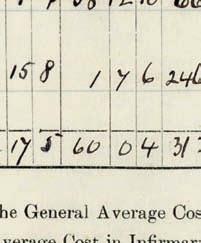 15 8 1 7 6 246
17 5 60 0 4 31
he General Average Cos
verage Cost in Infirmar